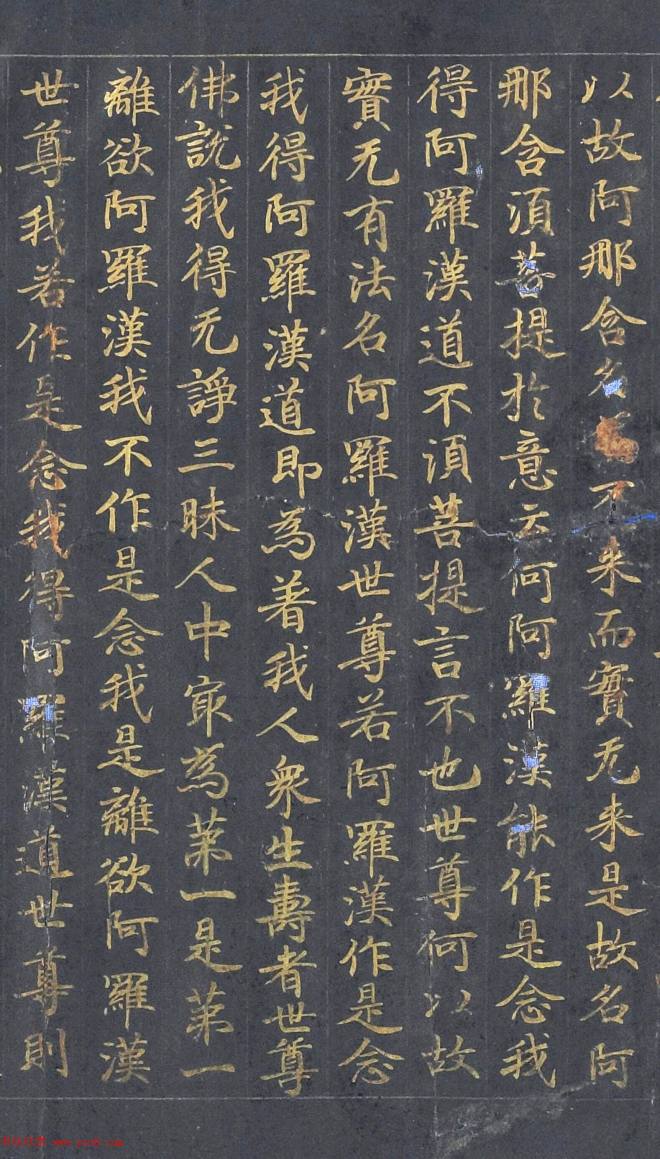 以故阿那含名不来而實无来是故名阿
那含須菩提扵意云何阿羅漢能作是念我
得阿羅漢道不須菩提言不也世尊何以故
實无有法名阿羅漢世尊若阿羅漢作是念
我得阿羅漢道即為着我人衆生壽者世尊
佛說我得无諍三昧人中冣為苐一是苐一
離欲阿羅漢我不作是念我是離欲阿羅漢
世尊我若作是念我得阿羅漢道世尊則